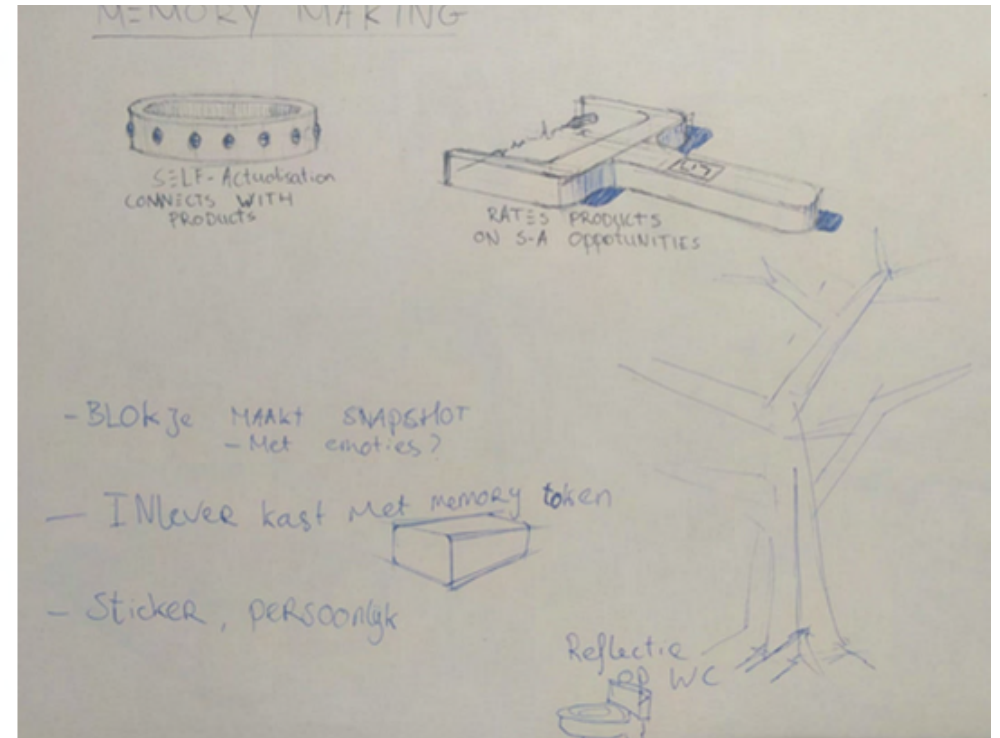 MEMORY MAKING
SELF-Actualisation
CONNECTS WITH
PRODUCTS
RATES PRODUCTS
ON S-A OPPOTUNITIES
- BLOKJE MAAKT SNAPSHOT
- Met emoties?
- INlever kast met memory token
- Sticker, persoonlijk
Reflectie
op WC